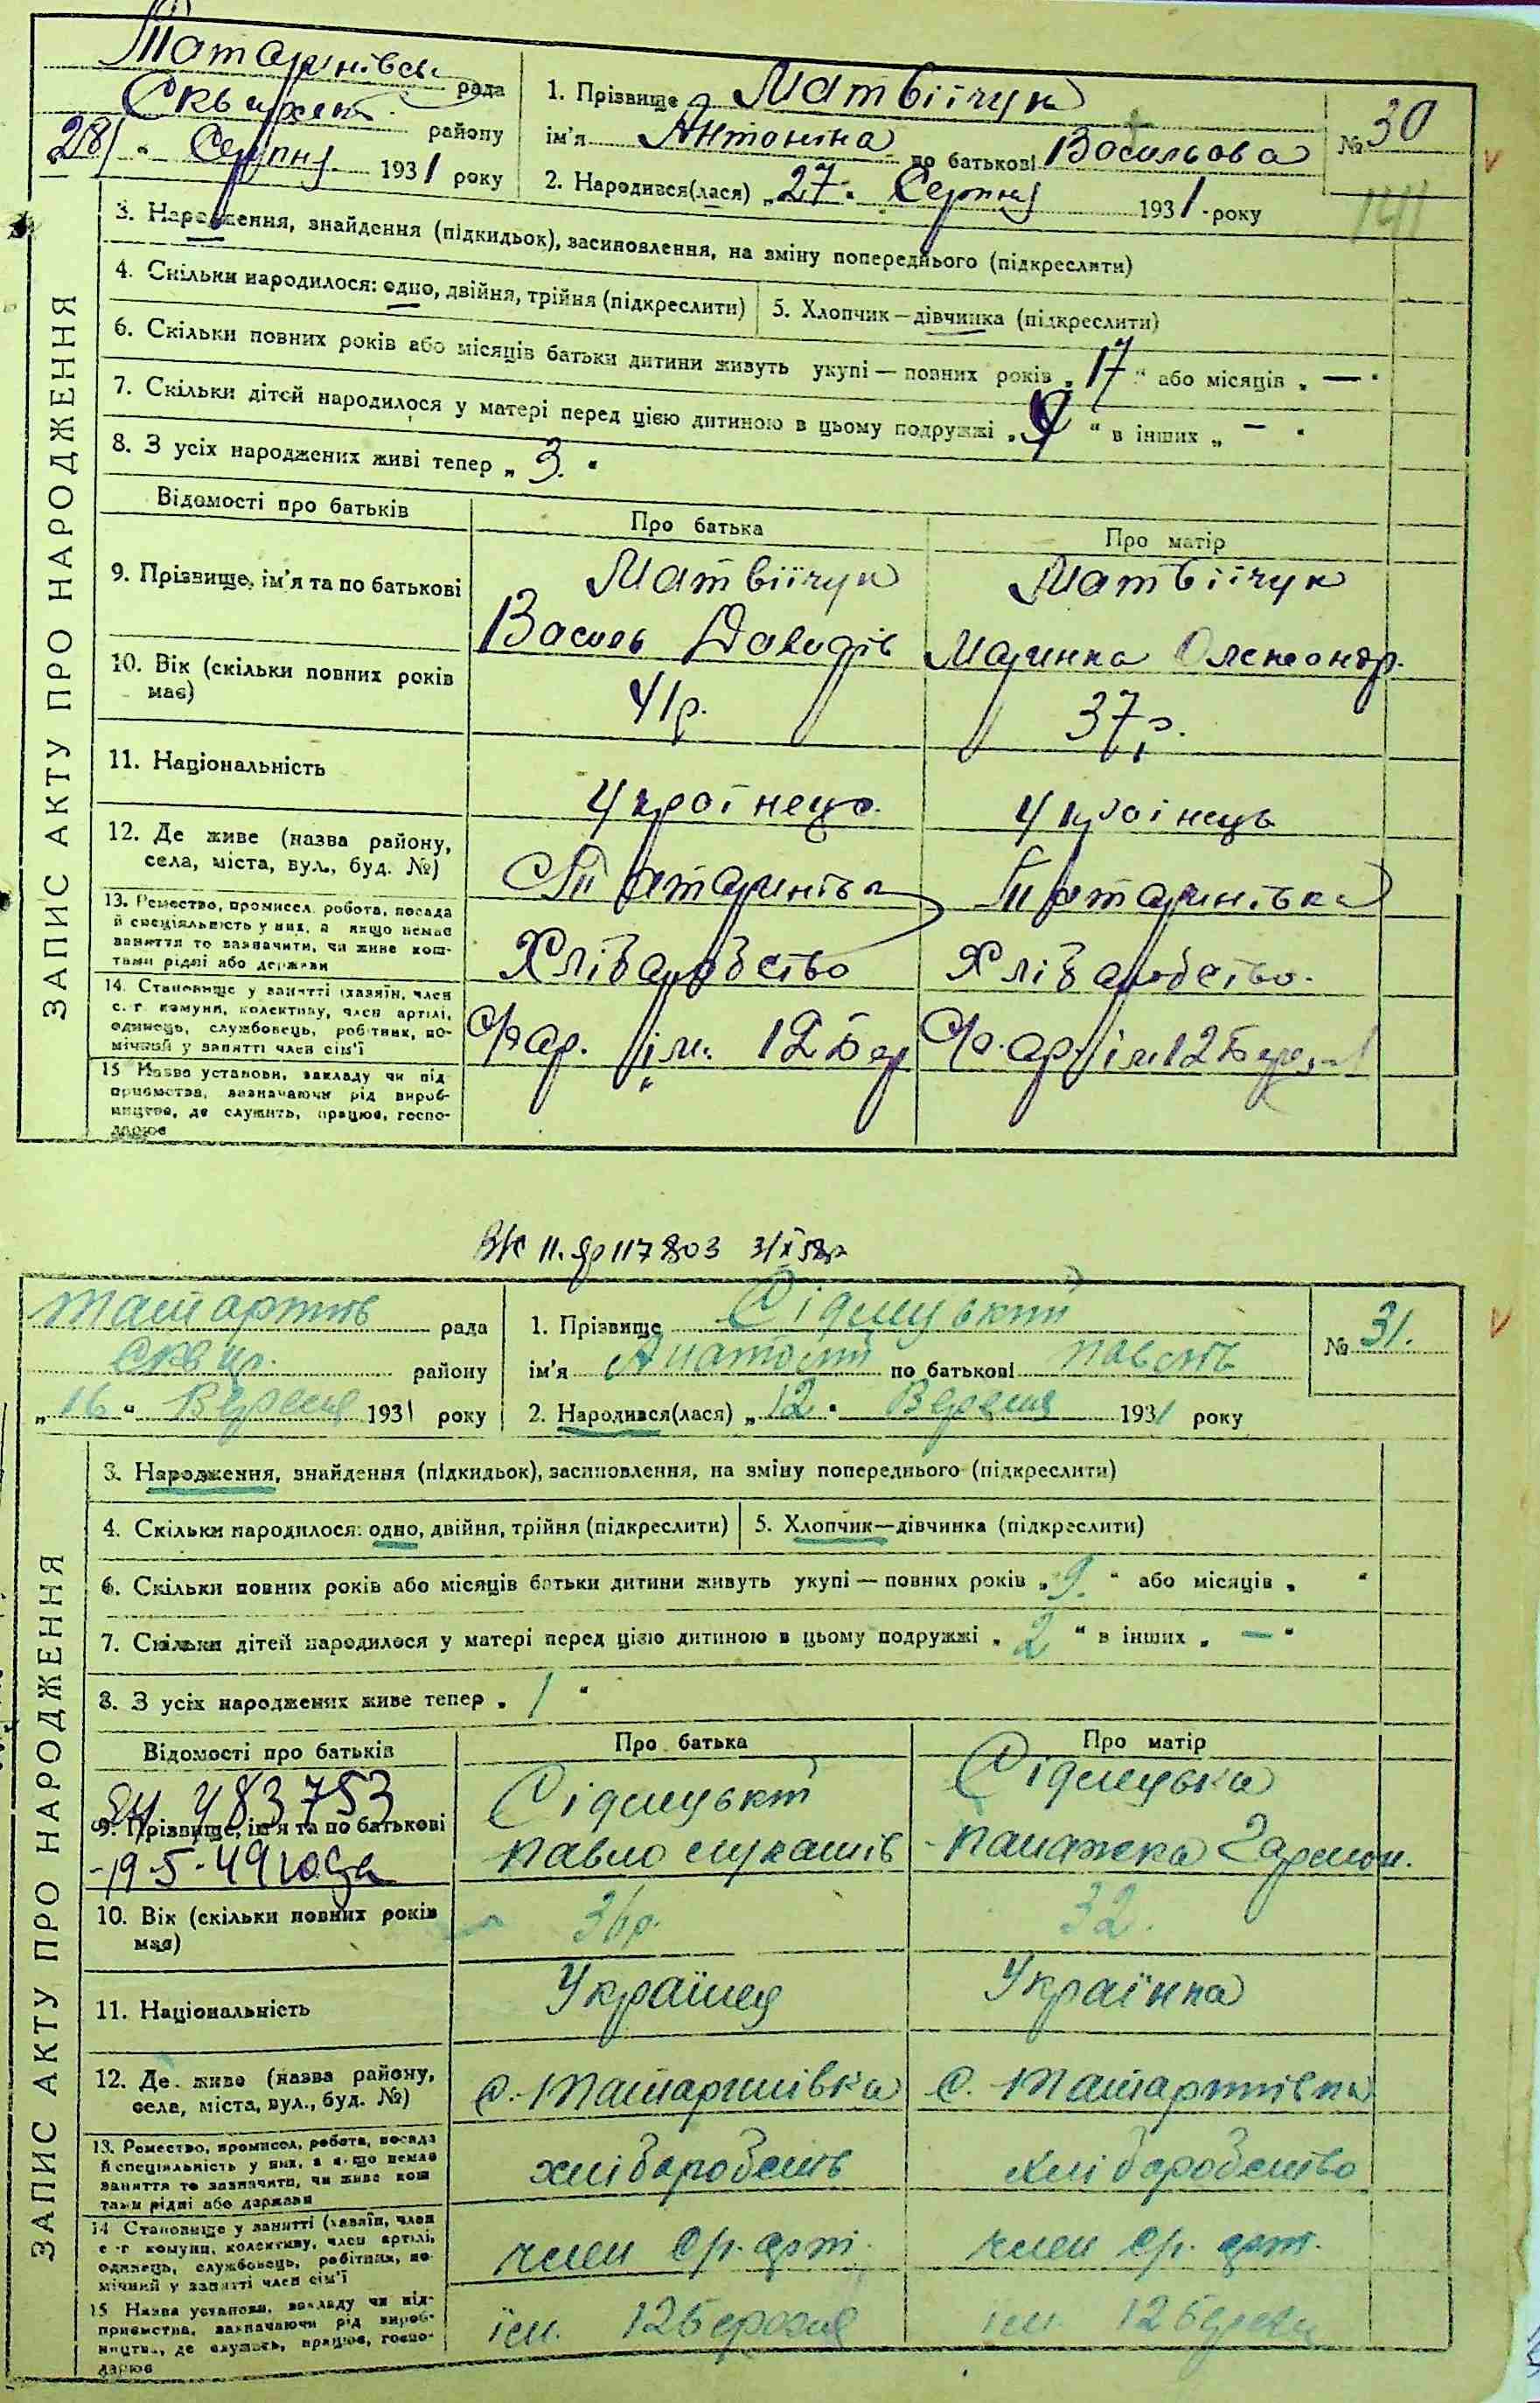 Татаринівськ рада
Сквирськ. району
"28" Серпня 1931 року
1. Прізвище Матвіічук
ім'я Антоніна по батькові Васильова
2. Народився(лася) "27" Серпня 1931 року
№ 30
141
ЗАПИС АКТУ ПРО НАРОДЖЕННЯ
3. Народження, знайдення (підкидьок), засиновлення, на зміну попереднього (підкреслити)
4. Скільки народилося: одно, двійня, трійня (підкреслити) 5. Хлопчик—дівчинка (підкреслити)
6. Скільки повних років або місяців батьки дитини живуть укупі — повних років „17“ або місяців „—“
7. Скільки дітей народилося у матері перед цією дитиною в цьому подружжі „“ в інших „—“
8. З усіх народжених живі тепер „3.“
Відомості про батьків Про батька Про матір
9. Прізвище, ім'я та по батькові
Матвіічук Матвіічук
Василь Давидів Маринка Олександр.
10. Вік (скільки повних років має)
41р. 37р.
11. Національність
Украінець. Украінець
12. Де живе (назва району,
села, міста, вул., буд. №)
С Татаринівка Татаринівка
13. Ремество, промисел, робота, посада
й спеціяльність у них, а якщо немає
заняття то зазначити, чи живе кош-
тами рідні або держави
Хліборобство Хліборобство.
14. Становище у занятті (хазяїн, член
с.-г. комуни, колективу, член артілі,
одинець, службовець, робітник, по-
мічний у занятті член сім'ї
ар. ім. 12 Бер ар. ім 12 Берез
15 Назва установи, закладу чи під-
приємства, зазначаючи рід вироб-
ництва, де служить, працює, госпо-
дарює
117803
Татаринів рада
Сквир. району
„16“ Вересня 1931 року
1. Прізвище Сідлецький
ім'я Анатолій по батькові Павлів
2. Народився(лася) „12“ Вересня 1931 року
№ 31.
ЗАПИС АКТУ ПРО НАРОДЖЕННЯ
3. Народження, знайдення (підкидьок), засиновлення, на зміну попереднього (підкреслити)
4. Скільки народилося: одно, двійня, трійня (підкреслити) 5. Хлопчик—дівчинка (підкреслити)
6. Скільки повних років або місяців батьки дитини живуть укупі — повних років „9.“ або місяців „ “
7. Скільки дітей народилося у матері перед цією дитиною в цьому подружжі „2“ в інших „—“
8. З усіх народжених живе тепер „1“
Відомості про батьків Про батька Про матір
483753
9. Прізвище, ім'я та по батькові
-19-5-49 года
Сідлецький Сідлецька
Павло Лукашів Палажка Гармон.
10. Вік (скільки повних років має)
36р. 32.
11. Національність
Українец Українка
12. Де живе (назва району,
села, міста, вул., буд. №)
с. Татаринівка с. Татаринівка
13. Ремество, промисел, робота, посада
й спеціяльність у них, а якщо немає
заняття то зазначити, чи живе кош
тами рідні або держави
хліборобств хліборобство
14 Становище у занятті (хазяїн, член
с.-г комуни, колективу, член артілі,
одинець, службовець, робітник, по-
мічний у занятті член сім'ї
член ср. арт. член ср. арт.
15 Назва установи, закладу чи під-
приємства, зазначаючи рід вироб-
ництва, де служить, працює, госпо-
дарює
ім. 12 Березня ім. 12 Березн